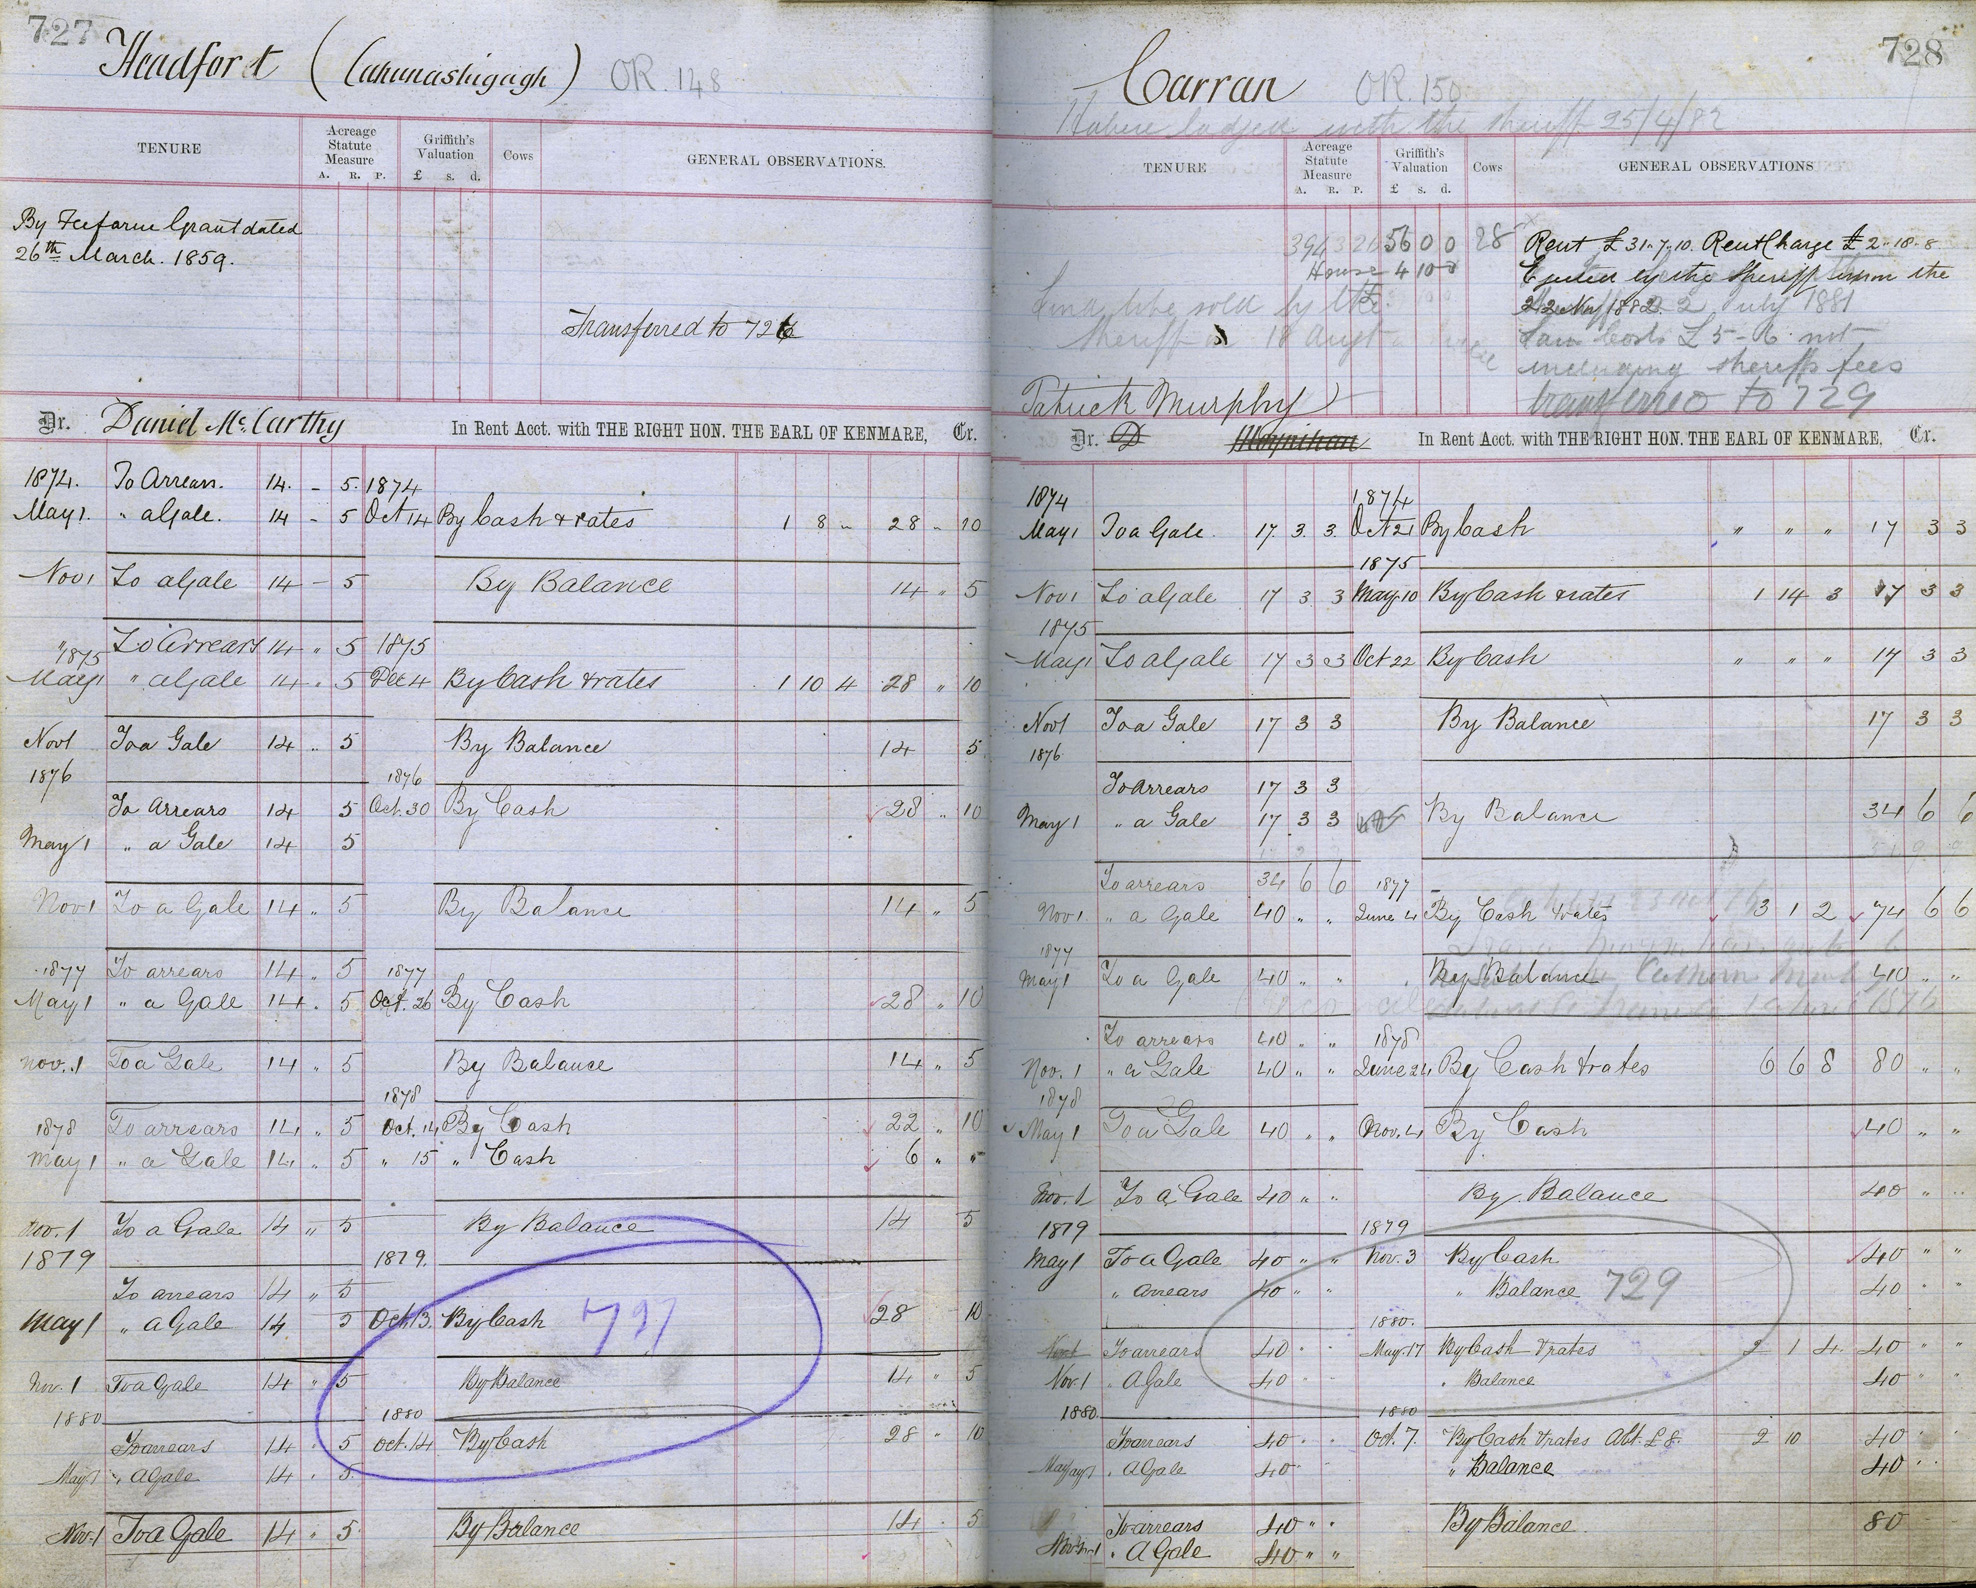 727
Headfort (Cahunashigagh) OR. 148
TENURE
Acreage Statute Measure
A. R. P.
Griffith's Valuation
£ s. d.
Cows
GENERAL OBSERVATIONS.
By Feefarm Grant dated
26th March. 1859.
Transferred to 726
Dr. Daniel McCarthy In Rent Acct. with THE RIGHT HON. THE EARL OF KENMARE, Cr.
1874. To Arrears. 14 - 5. 1874
May 1. " a Gale. 14 - 5 Oct 14 By Cash & rates 1 8 " 28 " 10
Nov 1 To a Gale 14 - 5 By Balance 14 " 5
" To Arrears 14 " 5 1875
1875
May 1 " a Gale 14 " 5 Dec 4 By Cash & rates 1 10 4 28 " 10
Nov 1 To a Gale 14 " 5 By Balance 14 5
1876 1876
To Arrears 14 5 Oct. 30 By Cash 28 " 10
May 1 " a Gale 14 5
Nov 1 To a Gale 14 " 5 By Balance 14 " 5
1877 To arrears 14 " 5 1877
May 1 " a Gale 14 " 5 Oct. 26 By Cash 28 " 10
Nov. 1 To a Gale 14 " 5 By Balance 14 " 5
1878
1878 To arrears 14 " 5 Oct. 14 By Cash 22 " 10
May 1 " a Gale 14 " 5 " 15 " Cash 6 " "
Nov. 1 To a Gale 14 " 5 By Balance 14 5
1879 1879.
To arrears 14 " 5
May 1 " a Gale 14 5 Oct. 13. By Cash 28 10
797
Nov. 1 To a Gale 14 " 5 By Balance 14 " 5
1880 1880
To arrears 14 " 5 Oct. 14 By Cash 28 " 10
May 1 " A Gale 14 " 5
Nov. 1 To a Gale 14 " 5 By Balance 14 " 5
728
Carran OR. 150
Habere lodged with the sheriff 25/4/82
TENURE
Acreage Statute Measure
A. R. P.
Griffith's Valuation
£ s. d.
Cows
GENERAL OBSERVATIONS
394 3 26 56 0 0 28 Rent £31-7-10. Rent Charge £2-18-8
House 4 10 0 Ejected by the Sheriff upon the
22 Nov 1882. 22 July 1881
to be sold by the
Sheriff 18 Augt
Law Costs £5-6 not
including sheriffs fees
transferred to 729
Patrick Murphy
Dr. D Moynihan In Rent Acct. with THE RIGHT HON. THE EARL OF KENMARE, Cr.
1874 1874
May 1 To a Gale. 17. 3. 3. Oct 21 By Cash " " " 17 3 3
1875
Nov 1 To a Gale 17 3 3 May 10 By Cash & rates 1 14 3 17 3 3
1875
May 1 To a Gale 17 3 3 Oct 22 By Cash " " " 17 3 3
Nov 1 To a Gale 17 3 3 By Balance 17 3 3
1876
To Arrears 17 3 3
May 1 " a Gale 17 3 3 By Balance 34 6 6
To arrears 34 6 6 1877
Nov 1 " a Gale 40 " " June 4 By Cash & rates 3 1 2 74 6 6
1877
May 1 To a Gale 40 " " By Balance 40 " "
To arrears 40 " " 1878
Nov. 1 " a Gale 40 " " June 24 By Cash & rates 6 6 8 80 " "
1878
May 1 To a Gale 40 " " Nov. 4 By Cash 40 " "
Nov. 1 To a Gale 40 " " By Balance 40 " "
1879 1879
May 1 To a Gale 40 " " Nov. 3 By Cash 40 " "
" Arrears 40 " " " Balance 729 40 " "
1880.
Nov 1 To arrears 40 " " May 17 By Cash & rates 2 1 4 40 " "
Nov. 1 " A Gale 40 " " " Balance 40 " "
1880 1880
To arrears 40 " " Oct. 7. By Cash & rates Abt. £8. 2 10 40 " "
May 1 " A Gale 40 " Balance 40 " "
To arrears 40 " " By Balance 80
Nov. 1 " A Gale 40 " "